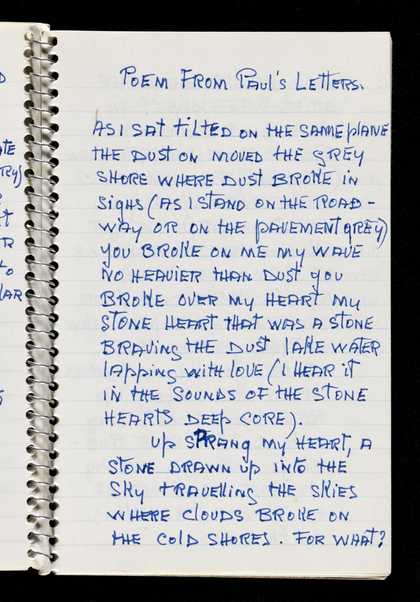 POEM FROM PAUL'S LETTERS.
AS I SAT TILTED ON THE SAME PLANE
THE DUST ON MOVED THE GREY
SHORE WHERE DUST BROKE IN
SIGHS (AS I STAND ON THE ROAD -
WAY OR ON THE PAVEMENT GREY)
YOU BROKE ON ME MY WAVE
NO HEAVIER THAN DUST YOU
BROKE OVER MY HEART MY
STONE HEART THAT WAS A STONE
BRAVING THE DUST LAKE WATER
LAPPING WITH LOVE (I HEAR IT
IN THE SOUNDS OF THE STONE
HEARTS DEEP CORE).
UP SPRANG MY HEART, A
STONE DRAWN UP INTO THE
SKY TRAVELLING THE SKIES
WHERE CLOUDS BROKE ON
THE COLD SHORES. FOR WHAT?